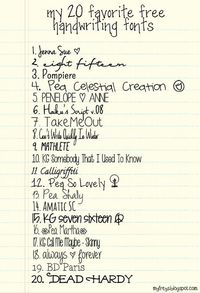 my 20 favorite free
handwriting fonts
1. Jenna Sue ♡
2. eight fifteen
3. Pompiere
4. Pea Celestial Creation
5. PENELOPE ♡ ANNE
6. Hailey's Script v.08
7. Take Me Out
8. Can't Write Quickly In Water
9. MATHLETE
10. KG Somebody That I Used To Know
11. Calligraffiti
12. Pea So Lovely
13. Pea Shaly
14. AMATIC SC
15. KG seven sixteen
16. Pea Martha
17. KG Call Me Maybe - Skinny
18. always ♡ forever
19. BD Paris
20. DEAD HARDY